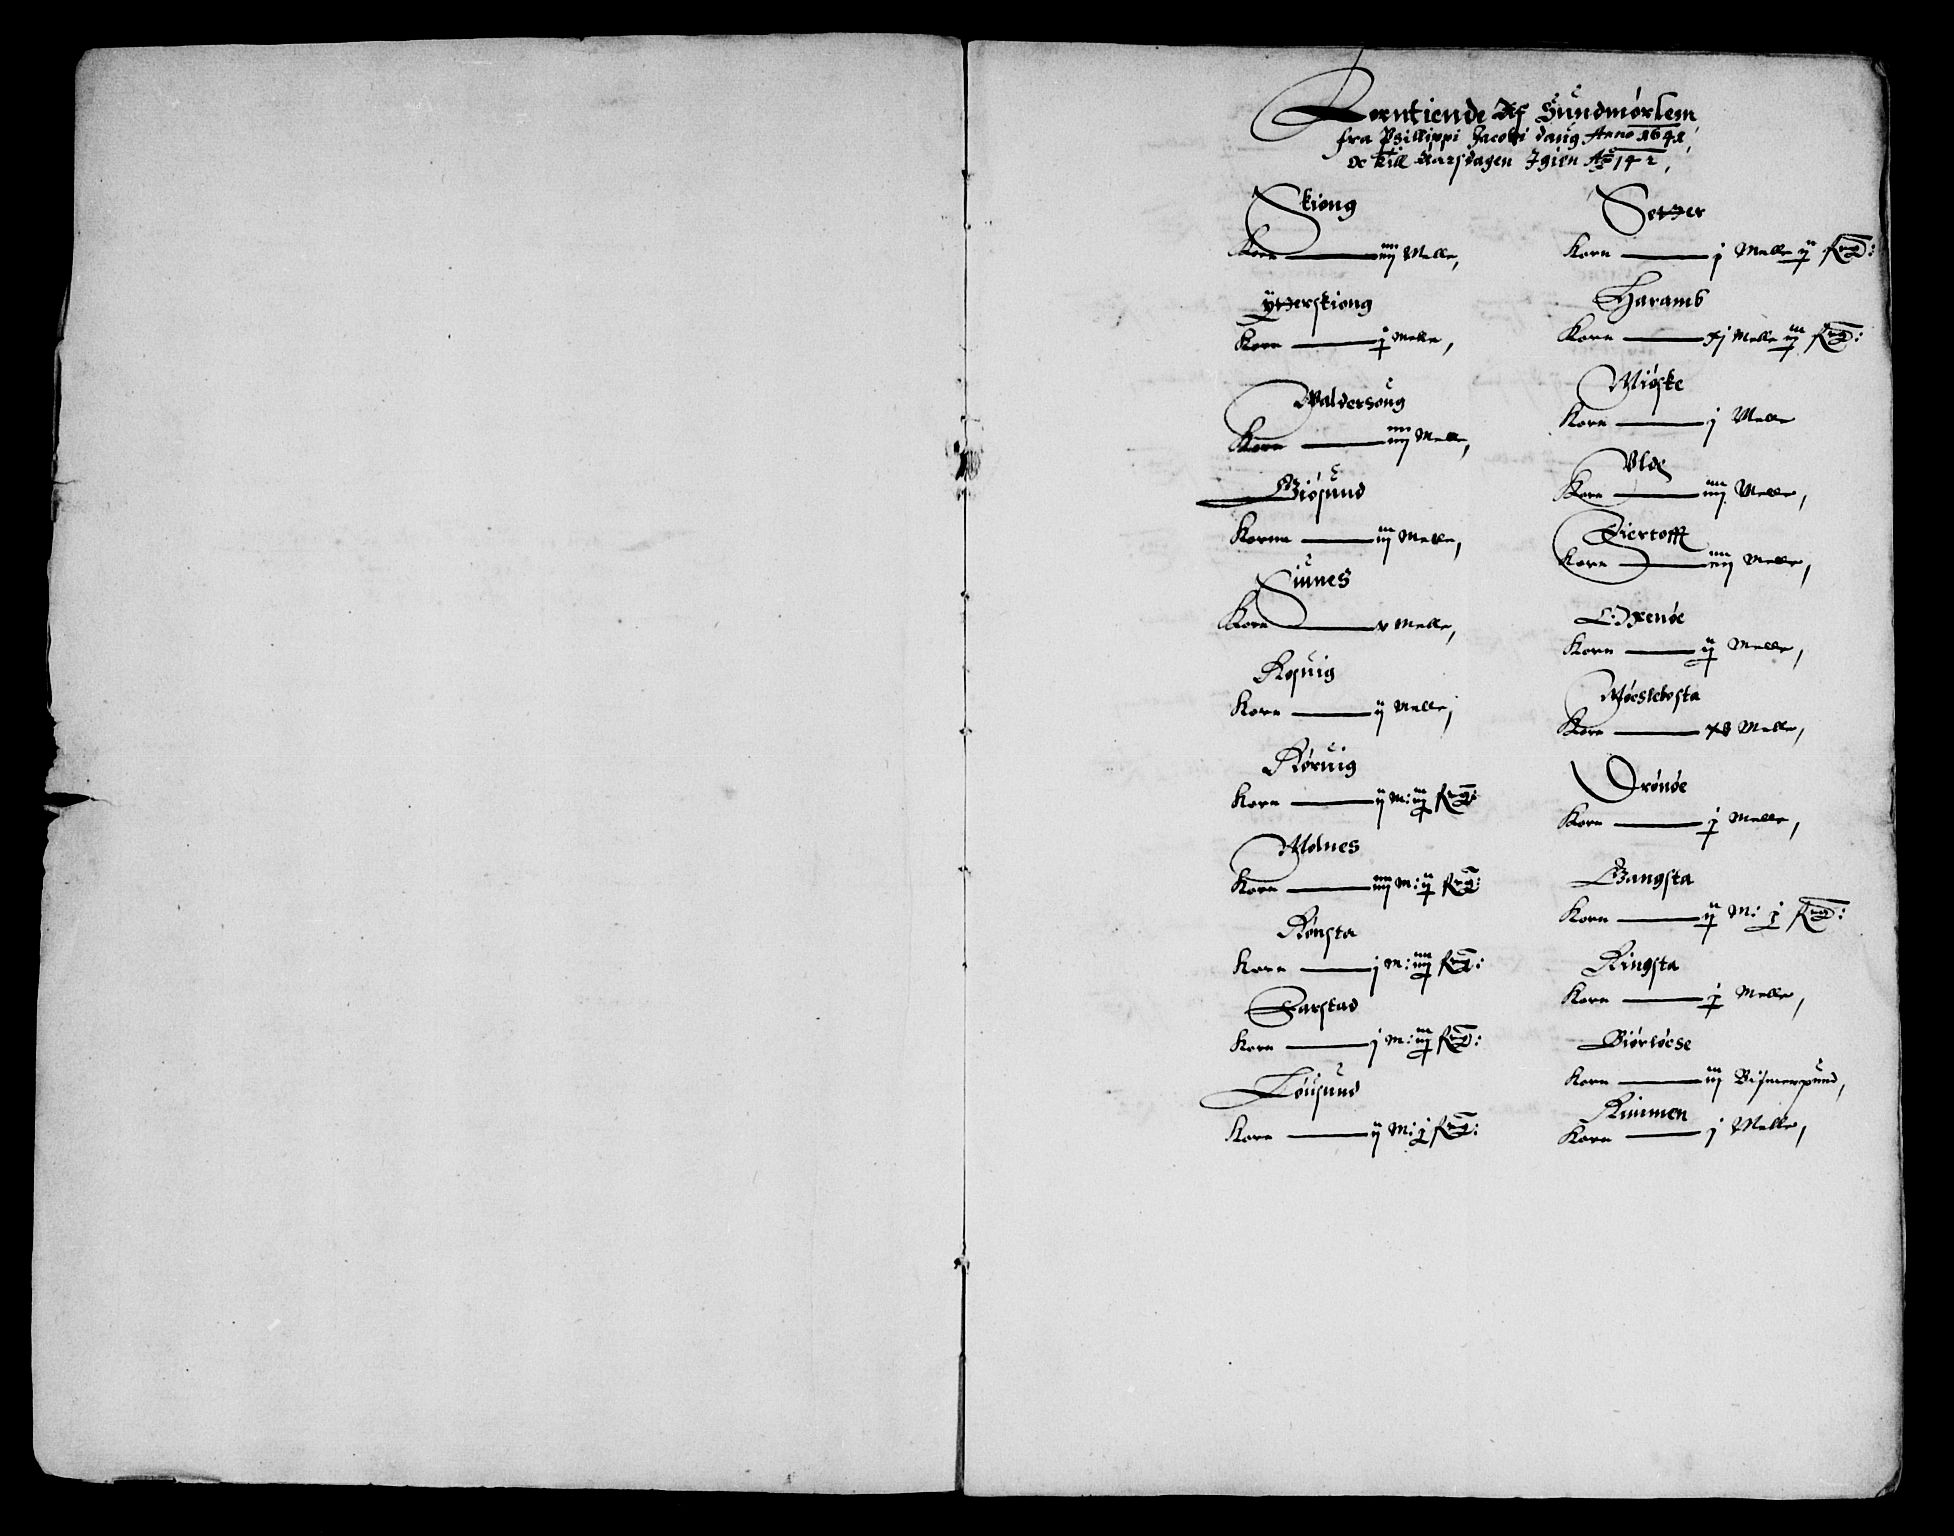 Korntiende Af Sundmørlem
fra Philippi Jacobi daug Anno 1641,
oc till Aarsdagen Igien Ao 142,
Skiong
Korn — iiij Melle,
Ytterskiong
Korn — j Melle,
Waldersoug
Korn — iiij Melle,
Giøsund
Kornn — iij Melle,
Siunes
Korn — v Melle,
Rosuig
Korn — ij Melle,
Røruig
Korn — ij M: iij
Alnes
Korn — iiij M: ij
Rønsta
Korn — j M: iiij
Farstad
Korn — j M: iij
Løusund
Korn — ij M: j
Setter
Korn — j Melle ij
Haramb
Korn — xj Melle iij
Miøske
Korn — j Melle
Vlde
Korn — iiij Melle,
Fiertofft
Korn — iiij Melle,
Oxenøe
Korn — ij Melle,
Møeslebosta
Korn — xv Melle,
Drønøe
Korn — j Melle,
Gangsta
Korn — ij M: j
Ringsta
Korn — j Melle,
Biørløese
Korn — iij Bismerpund,
Rimmen
Korn — j Melle,